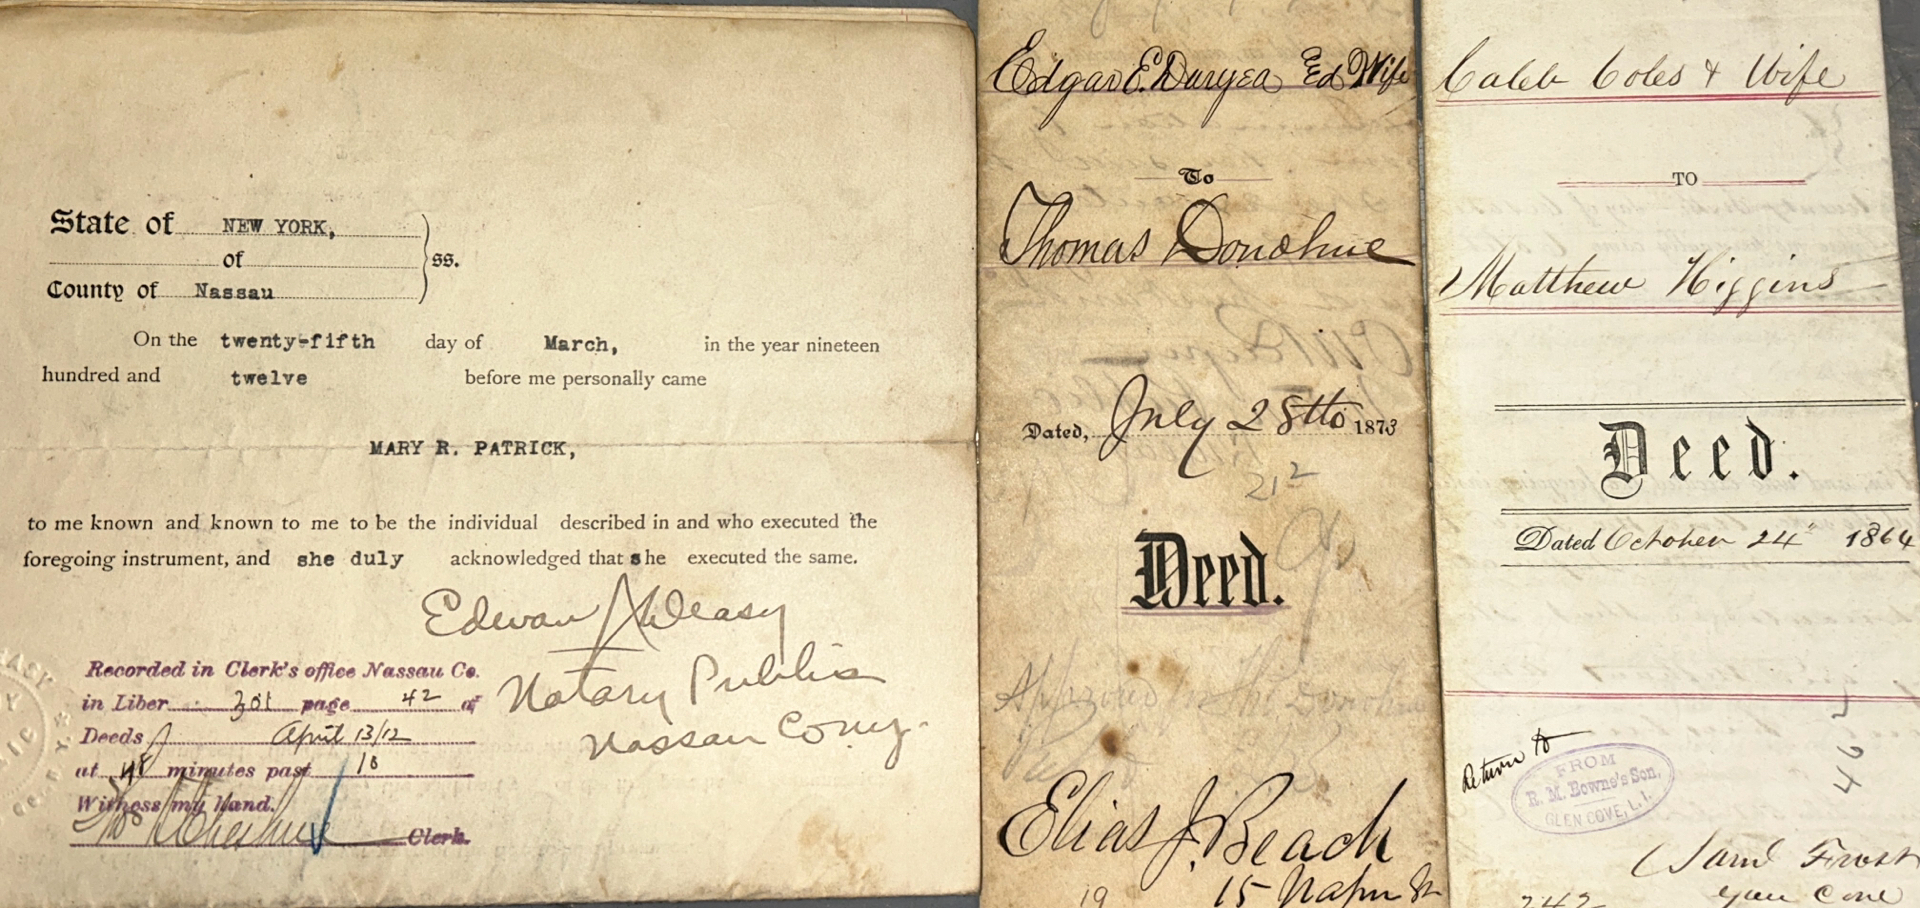 State of NEW YORK,
of
County of Nassau
ss.
On the twenty-fifth day of March, in the year nineteen
hundred and twelve before me personally came
MARY R. PATRICK,
to me known and known to me to be the individual described in and who executed the
foregoing instrument, and she duly acknowledged that she executed the same.
Notary Public
Nassau Conty.
Recorded in Clerk's office Nassau Co.
in Liber 301 page 42 of
Deeds April 13/12
at 48 minutes past 10
Witness my hand.
Clerk.
Edgar E. Duryea Ed Wife
To
Thomas Donohue
Dated, July 28th 1873
212
Deed.
Elias J. Beach
19
15
Caleb Coles & Wife
TO
Matthew Higgins
Deed.
Dated October 24" 1864
Return to
FROM
R. M. Bowne's Son.
GLEN COVE, L.I.
467
Saml Frost
Glen Cove
242